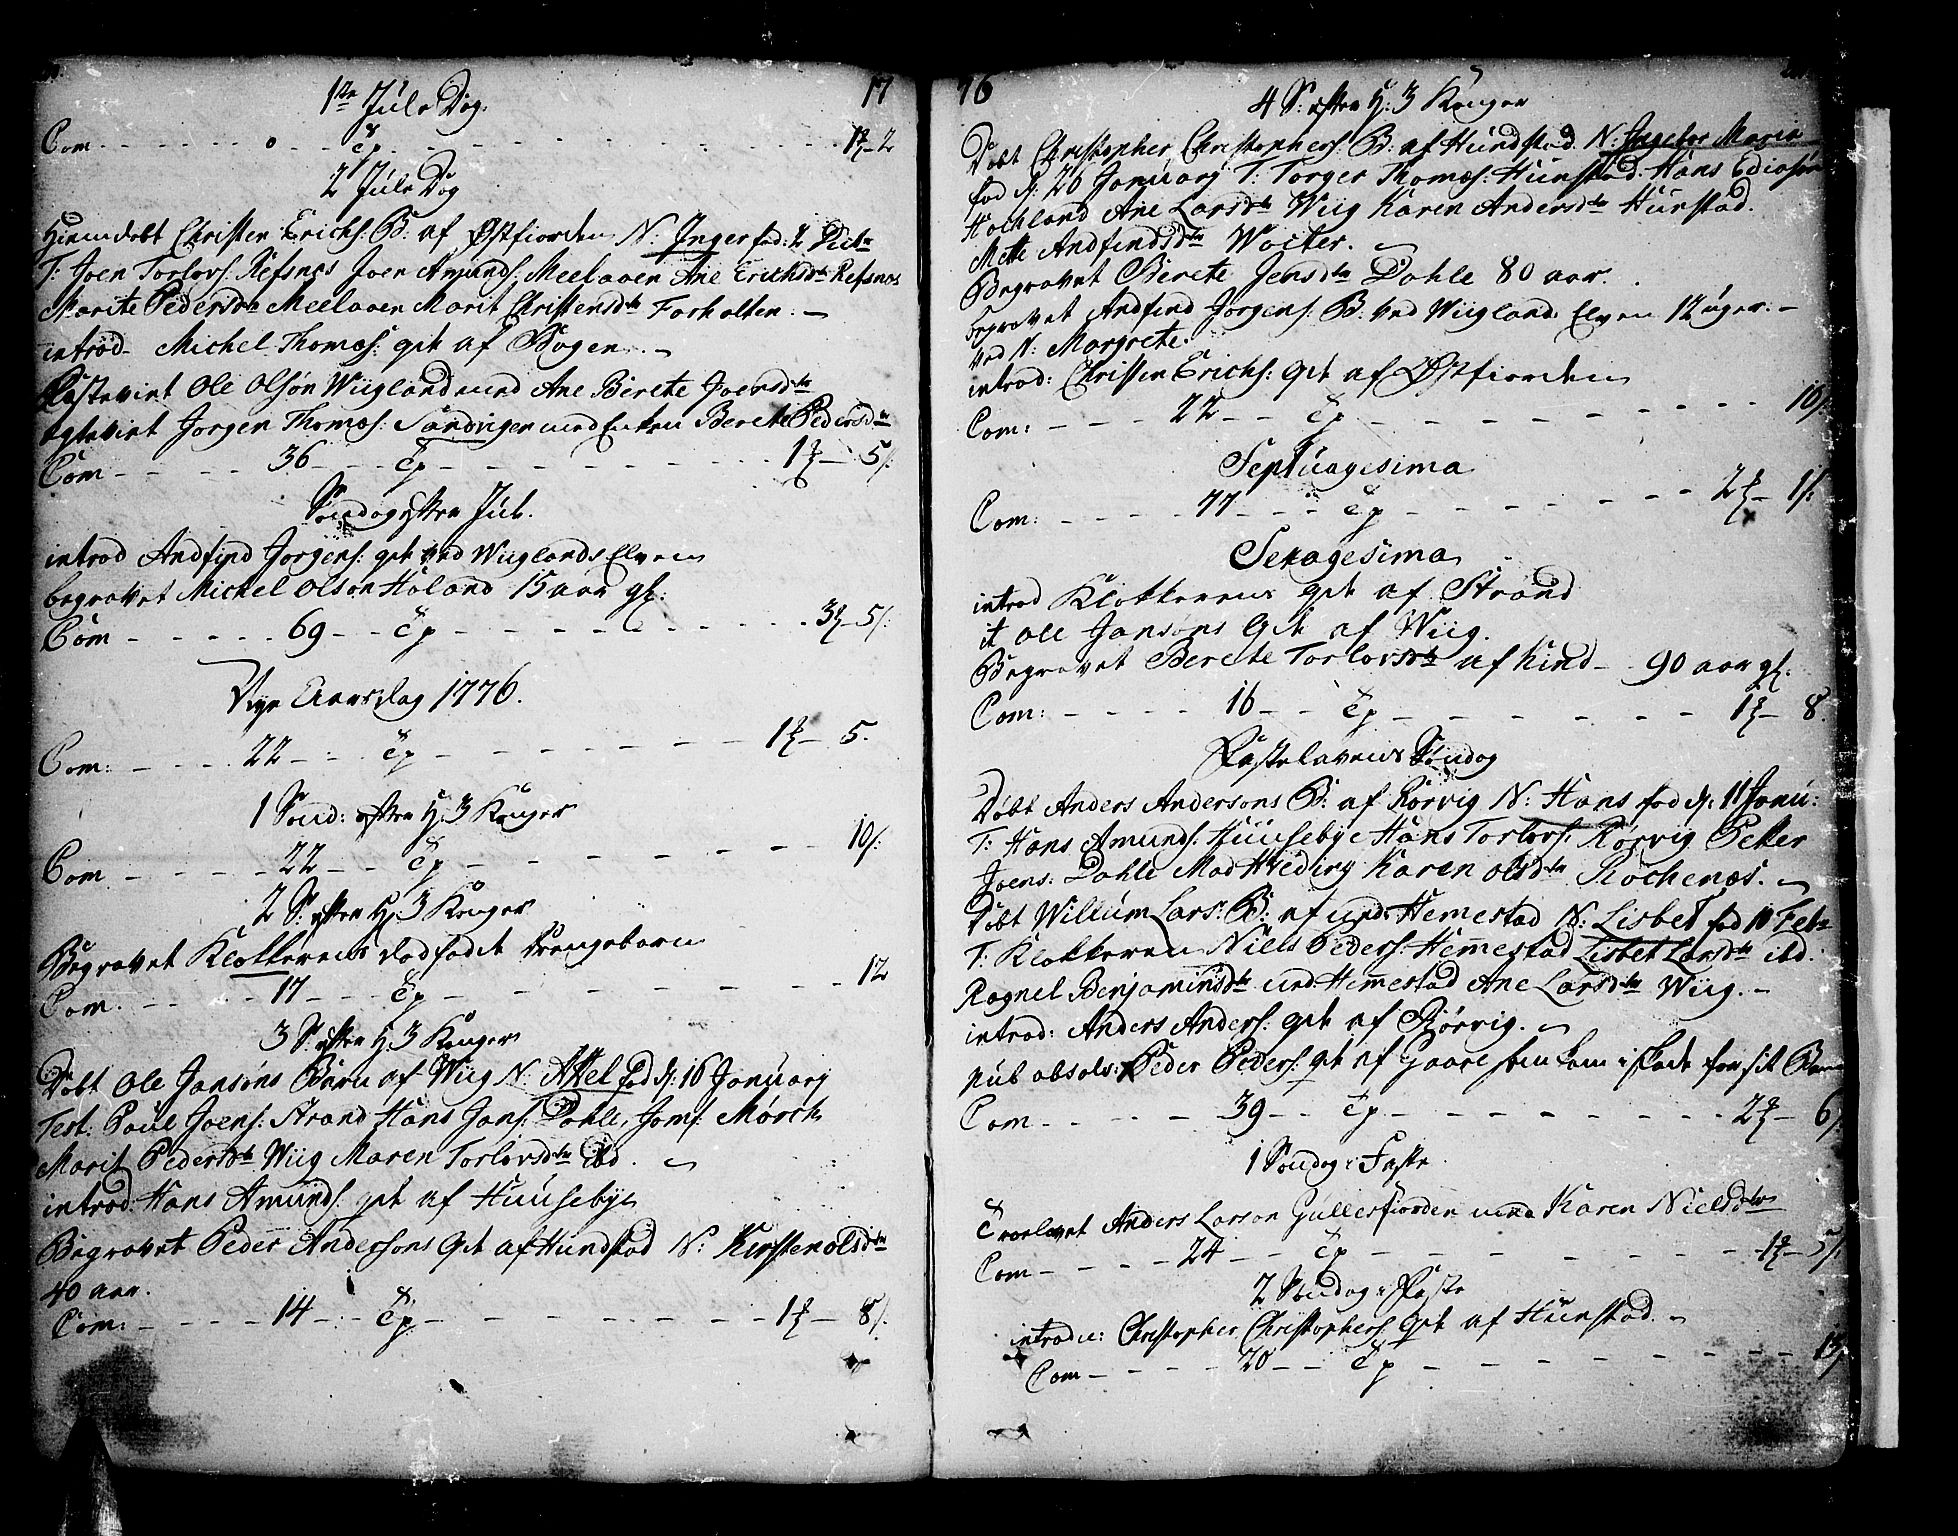 17
1te Jule Dag.
Com - - - - - - o - - - - - - 1 - 2
2 Jule Dag
Hiemdøbt Christen Erichs: B: af Østfiorden N: Inger fød: 2
T: Joen Torlovs: Refsnes Joen Amunds: Meelaaen Ane Erichsdtr Refsnes
Marite Pedersdtr Meelaaen Marit Christensdtr Forholten.
introd. Michel Thomæs: qvt af Bogen.
Fæstevirt Ole Olsøn Wiigland med Ane Berete Joensdtr
Egtevirt Jorgen Thomæs: Sandvigen med Enken Berete Pedersdtr
Com - - - - 36 - - - - - - 1 - 5/:
Søndag efter Jul.
introd Andfind Jørgens: qvt ved Wiiglands Elven
begravet Michel Olsøn Høland 15 aar gl:
Com - - - - 69 - - - - - - 3 - 5/:
Nye Aarsdag 1776.
Com: - - - - 22 - - - - - - 1 - 5.
1 Sønd: efter H: 3 Konger
Com - - - - 22 - - - - - - 10/:
2 S: efter H: 3 Konger
Begravet Klokkerens dødfødt Drengebarn
Com. - - - - 17 - - - - - - 12
3 S: efter H: 3 Konger
Døbt Ole Jansøns Barn af Wiig N: Axel fød d: 16 Januarj
Test: Paul Joens: Strand Hans Jans: Dahle, Jomf: Mørch
Marit Pedersdtr Wiig Maren Torlovsdtr ibd.
introd: Hans Amunds: qvt af Huusebye
Begravet Peder Andersøns Qvt af Hundstad N: Kirsten Olsdtr
40 aar.
Com: - - - - 14 - - - - - - 1 - 8/:
76
4 S: efter H: 3 Konger
Døbt Christopher Christophers: B: af Hundstad N: Ingebor Maria
fød d: 26 Januarj T: Torger Thomæs: Hunstad Hans
Hochland Ane Larsdtr Wiig Karen Andersdtr Hunstad.
Mette Andfindsdtr Wocter.
Begravet Berete Jensdtr Dahle 80 aar.
begravet Andfind Jørgens: B: ved Wiigland Elven 12 uger.
ved N: Margrete.
introd: Christen Erichs: Qvt af Østfiorden
Com: - - - - 22 - - - - - - 16/:
Septuagesima
Com: - - - - 77 - - - - - - 2 - 1/:
Sexagesima
introd Klokkerens qvt af Strand
it Ole Jansøns Qvt af Wiig.
Begravet Berete Torlovsdtr af Kind - 90 aar gl.
Com: - - - - 16 - - - - - - 1 - 8.
Fastelavens Søndag
Døbt Anders Andersøns B: af Rørvig N: Hans fød d: 11 Janu:
T: Hans Amunds: Huusebye Hans Torlovs: Rørvig Petter
Joens: Dahle Mad Karen Olsdtr Kochenæs.
Døbt Willum Lars: B: af und: Hemestad N: Lisbet fød 10 Feb
T: Klokkeren Niels Peders: Hemmestad Lisbet Larsdtr ibd.
Ragnel Benjaminsdtr und: Hemmestad Ane Larsdtr Wiig.
introd: Anders Anders: qvt af Rørvig.
pub absolv: Peder Peders: qvt af Gaare som kom i for sit
Com. - - - - 39 - - - - - - 2 - 6/
1 Søndag i Faste
Troelovet Anders Larsøn Gullesfiorden med Karen Nielsdtr
Com - - - - 24 - - - - - - 1 - 5/:
2 Søndag i Faste
introdu: Christopher Christophers: Qvt af Hunstad.
Com - - - - 20 - - - - - -